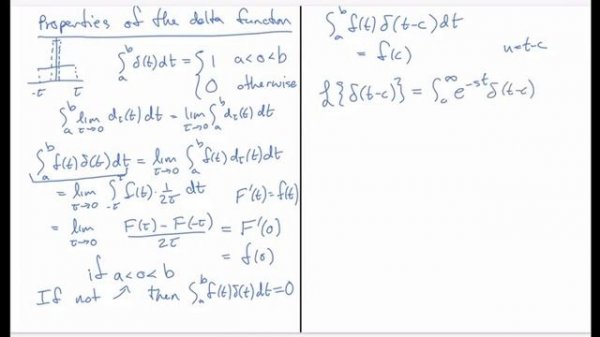 Properties of the delta function
-τ τ
∫_a^b δ(t)dt = { 1 a<0<b
0 otherwise
∫_a^b lim_{τ→0} d_τ(t)dt = lim_{τ→0} ∫_a^b d_τ(t)dt
∫_a^b f(t)δ(t)dt = lim_{τ→0} ∫_a^b f(t)d_τ(t)dt
= lim_{τ→0} ∫_{-τ}^τ f(t)·1/2τ dt F'(t)=f(t)
= lim_{τ→0} F(τ)-F(-τ)/2τ = F'(0)
= f(0)
if a<0<b
If not ↗ then ∫_a^b f(t)δ(t)dt=0
∫_a^b f(t)δ(t-c)dt
= f(c) u=t-c
ℒ{δ(t-c)} = ∫_0^∞ e^{-st}δ(t-c)